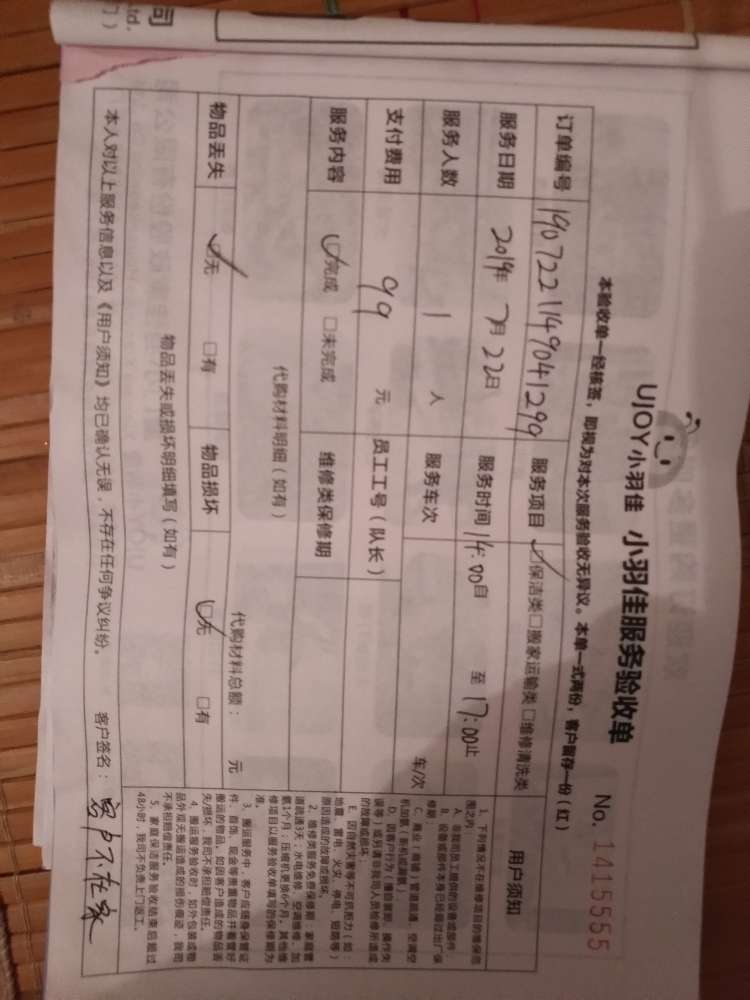 司
td.
UJOY小羽佳 小羽佳服务验收单
No. 1415555
本验收单一经核签，即视为对本次服务验收无异议。本单一式两份，客户留存一份（红）
订单编号 190722114904129９ 服务项目 保洁类 □搬家运输类 □维修清洗类
服务日期 2019年 7月 22日 服务时间 14:00自 至 17:00止
服务人数 1 人 服务车次 车/次
支付费用 99 元 员工工号（队长）
服务内容 完成 □未完成 维修类保修期
代购材料明细（如有） 代购材料总额： 元
物品丢失 无 □有 物品损坏 无 □有
物品丢失或损坏明细填写（如有）
本人对以上服务信息以及《用户须知》均已确认无误，不存在任何争议纠纷。 客户签名：客户不在家
用户须知
1、下列情况不在维修项目的维保范
围之内：
A、非我司员工提供的设备或部件
B、设备或部件本身已经超过出厂保
修期
C、商业（商铺）管道疏通、空调空
机加氨（新机或漏氨）
D、因用户行为（擅自挪用、操作失
误等）或另请非我司人员检修所造成
的故障或损坏。
E、因自然灾害等不可抗力（如：
地震、雷电、火灾、停电、短路等）
原因造成的故障或损坏。
2、维修类服务免费保修期：家庭管
道疏通3天；水电维修、空调维修、加
氨1个月；压缩机更换6个月。其他维
修项目以服务验收单填写的保修期为
准。
3、搬运服务中，客户应随身保管证
件、首饰、现金等贵重物品并看管好
搬运的物品。如因客户造成的物品丢
失/损坏，我司不承担赔偿责任。
4、搬运服务验收时，如外包装或物
品外观无搬运造成的损伤痕迹，我司
不承担赔偿责任。
5、家庭保洁服务验收结束后超过
48小时，我司不负责上门返工。